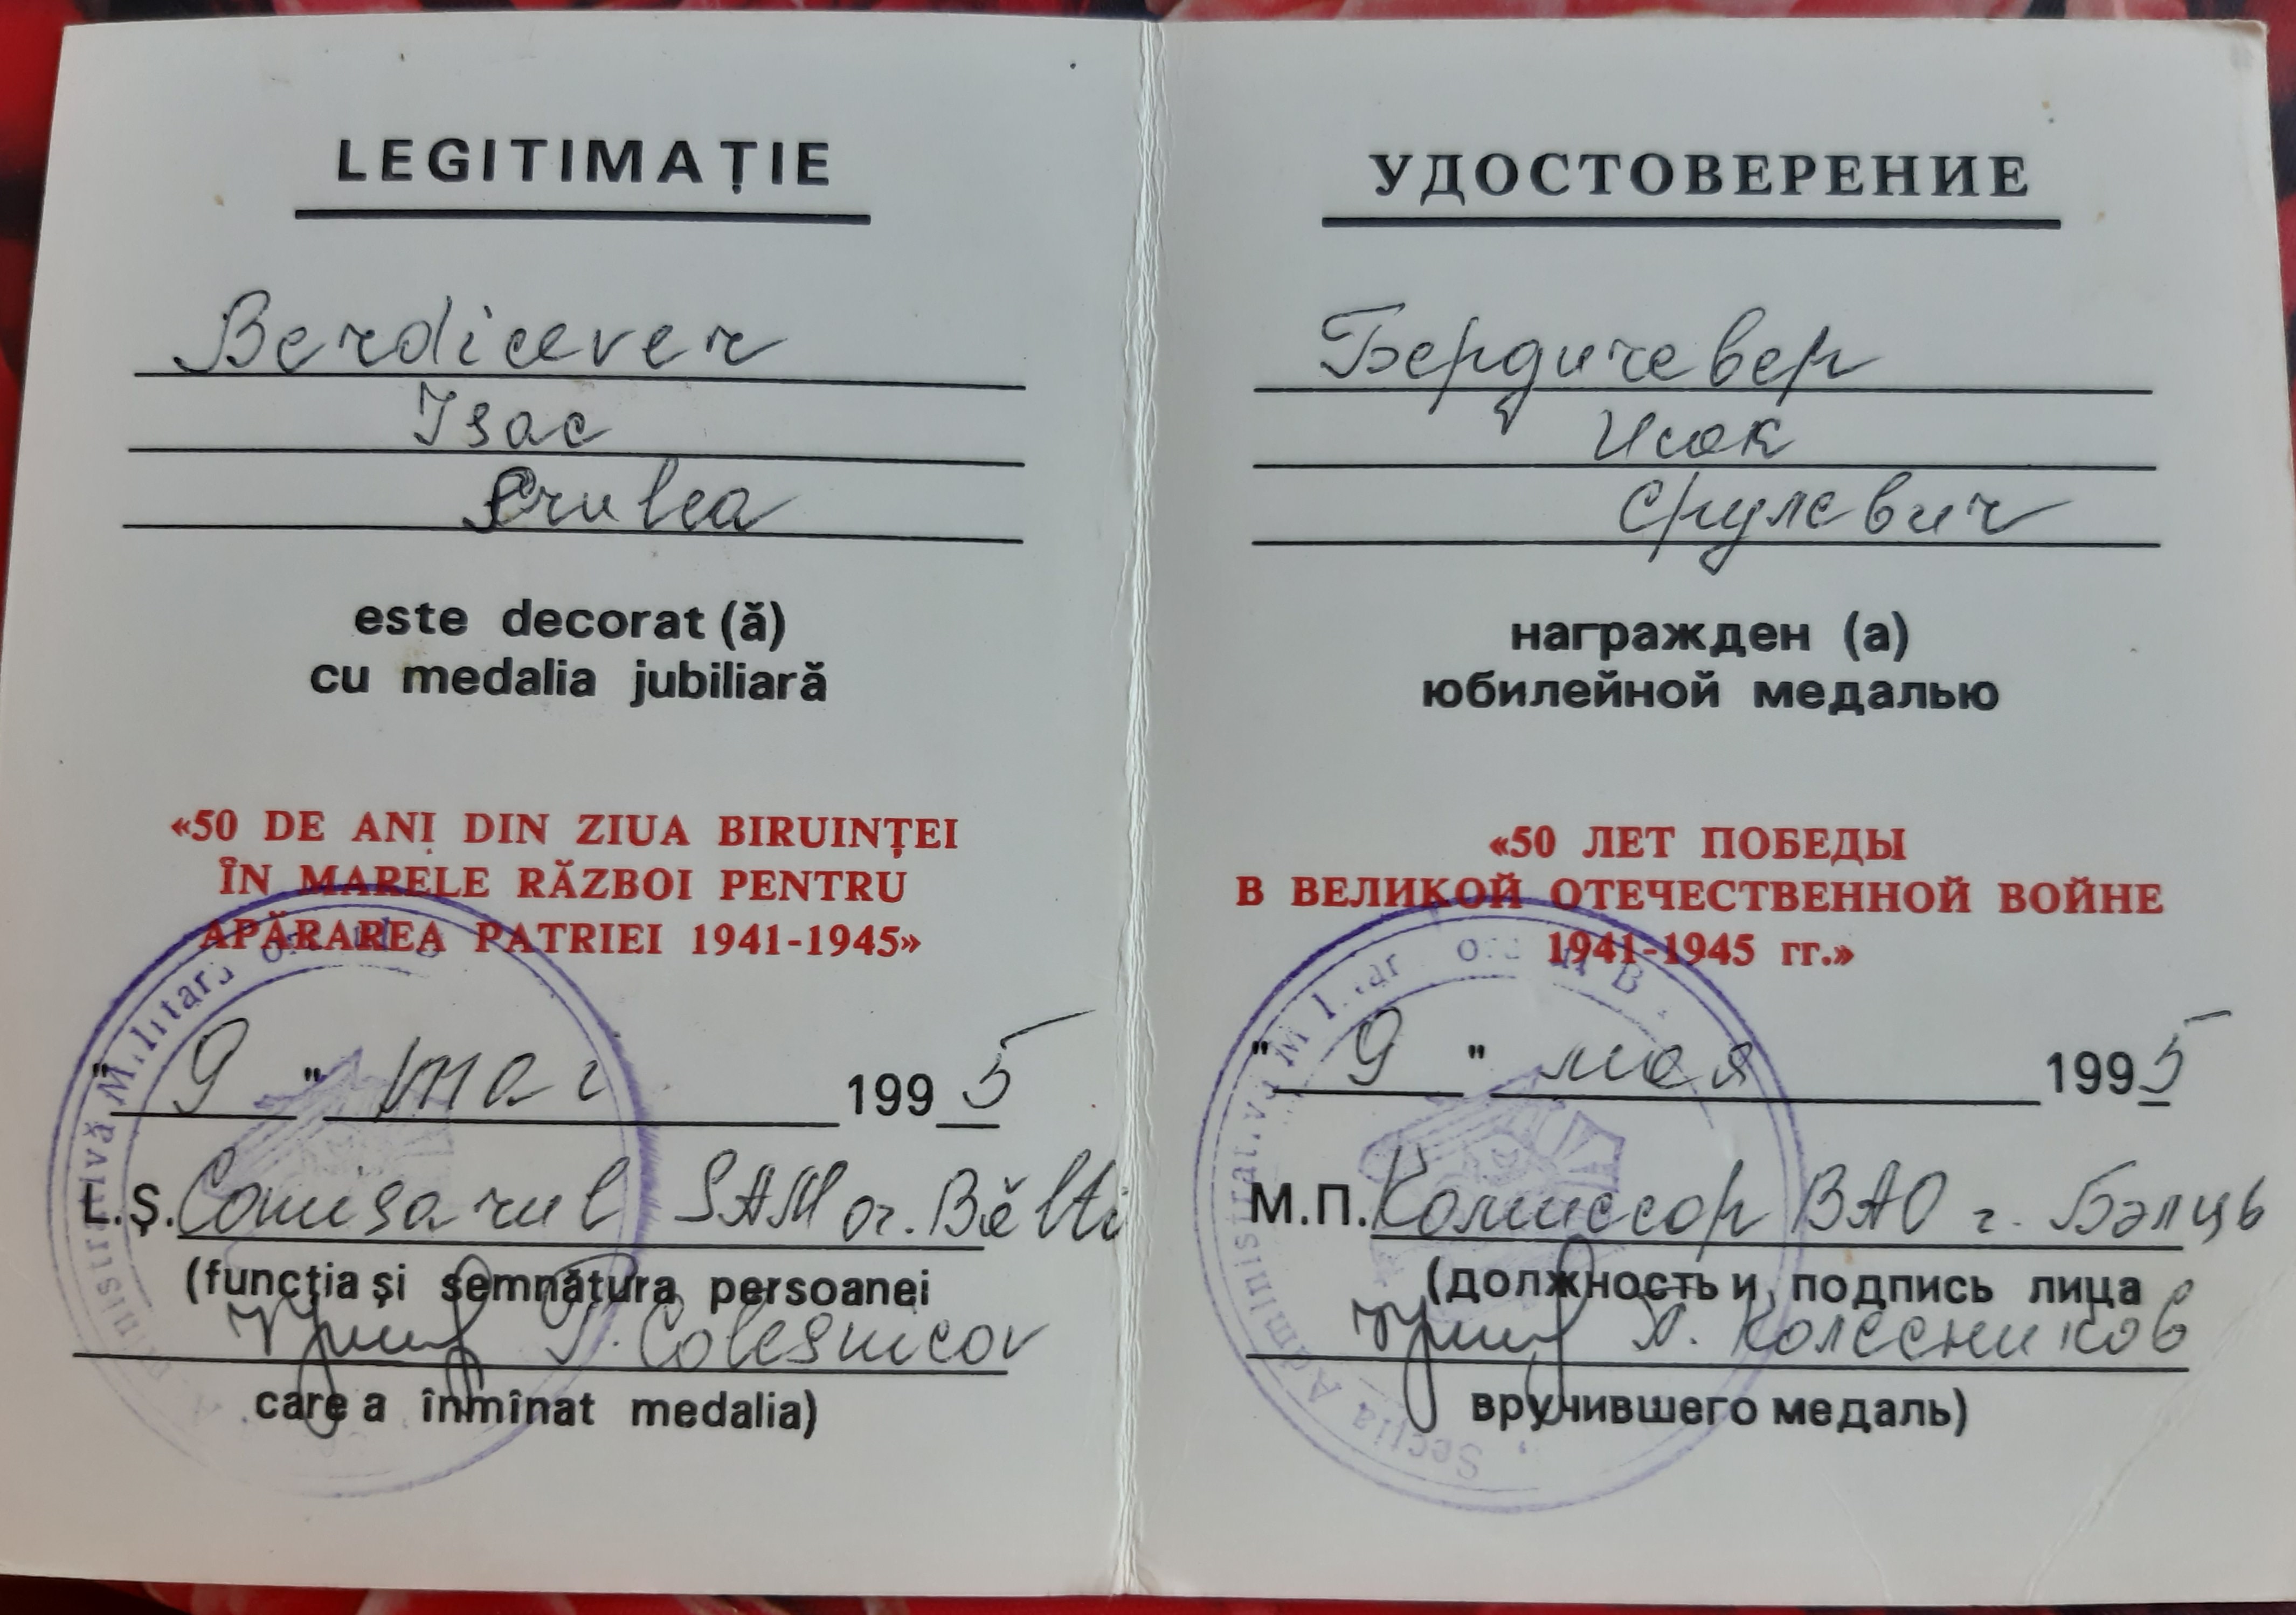 LEGITIMAȚIE
Berdicever
Isac
Srulea
este decorat (ă)
cu medalia jubiliară
«50 DE ANI DIN ZIUA BIRUINȚEI
ÎN MARELE RĂZBOI PENTRU
APĂRAREA PATRIEI 1941-1945»
" 9 " mai 1995
L.Ș. Comisarul SAM or. Bălti
(funcția și semnătura persoanei
Colesnicov
care a înmînat medalia)
УДОСТОВЕРЕНИЕ
Бердичевер
Исак
Срулевич
награжден (а)
юбилейной медалью
«50 ЛЕТ ПОБЕДЫ
В ВЕЛИКОЙ ОТЕЧЕСТВЕННОЙ ВОЙНЕ
1941-1945 гг.»
" 9 " мая 1995
М.П. Комиссар ВАО г. Бэлць
(должность и подпись лица
Колесников
вручившего медаль)